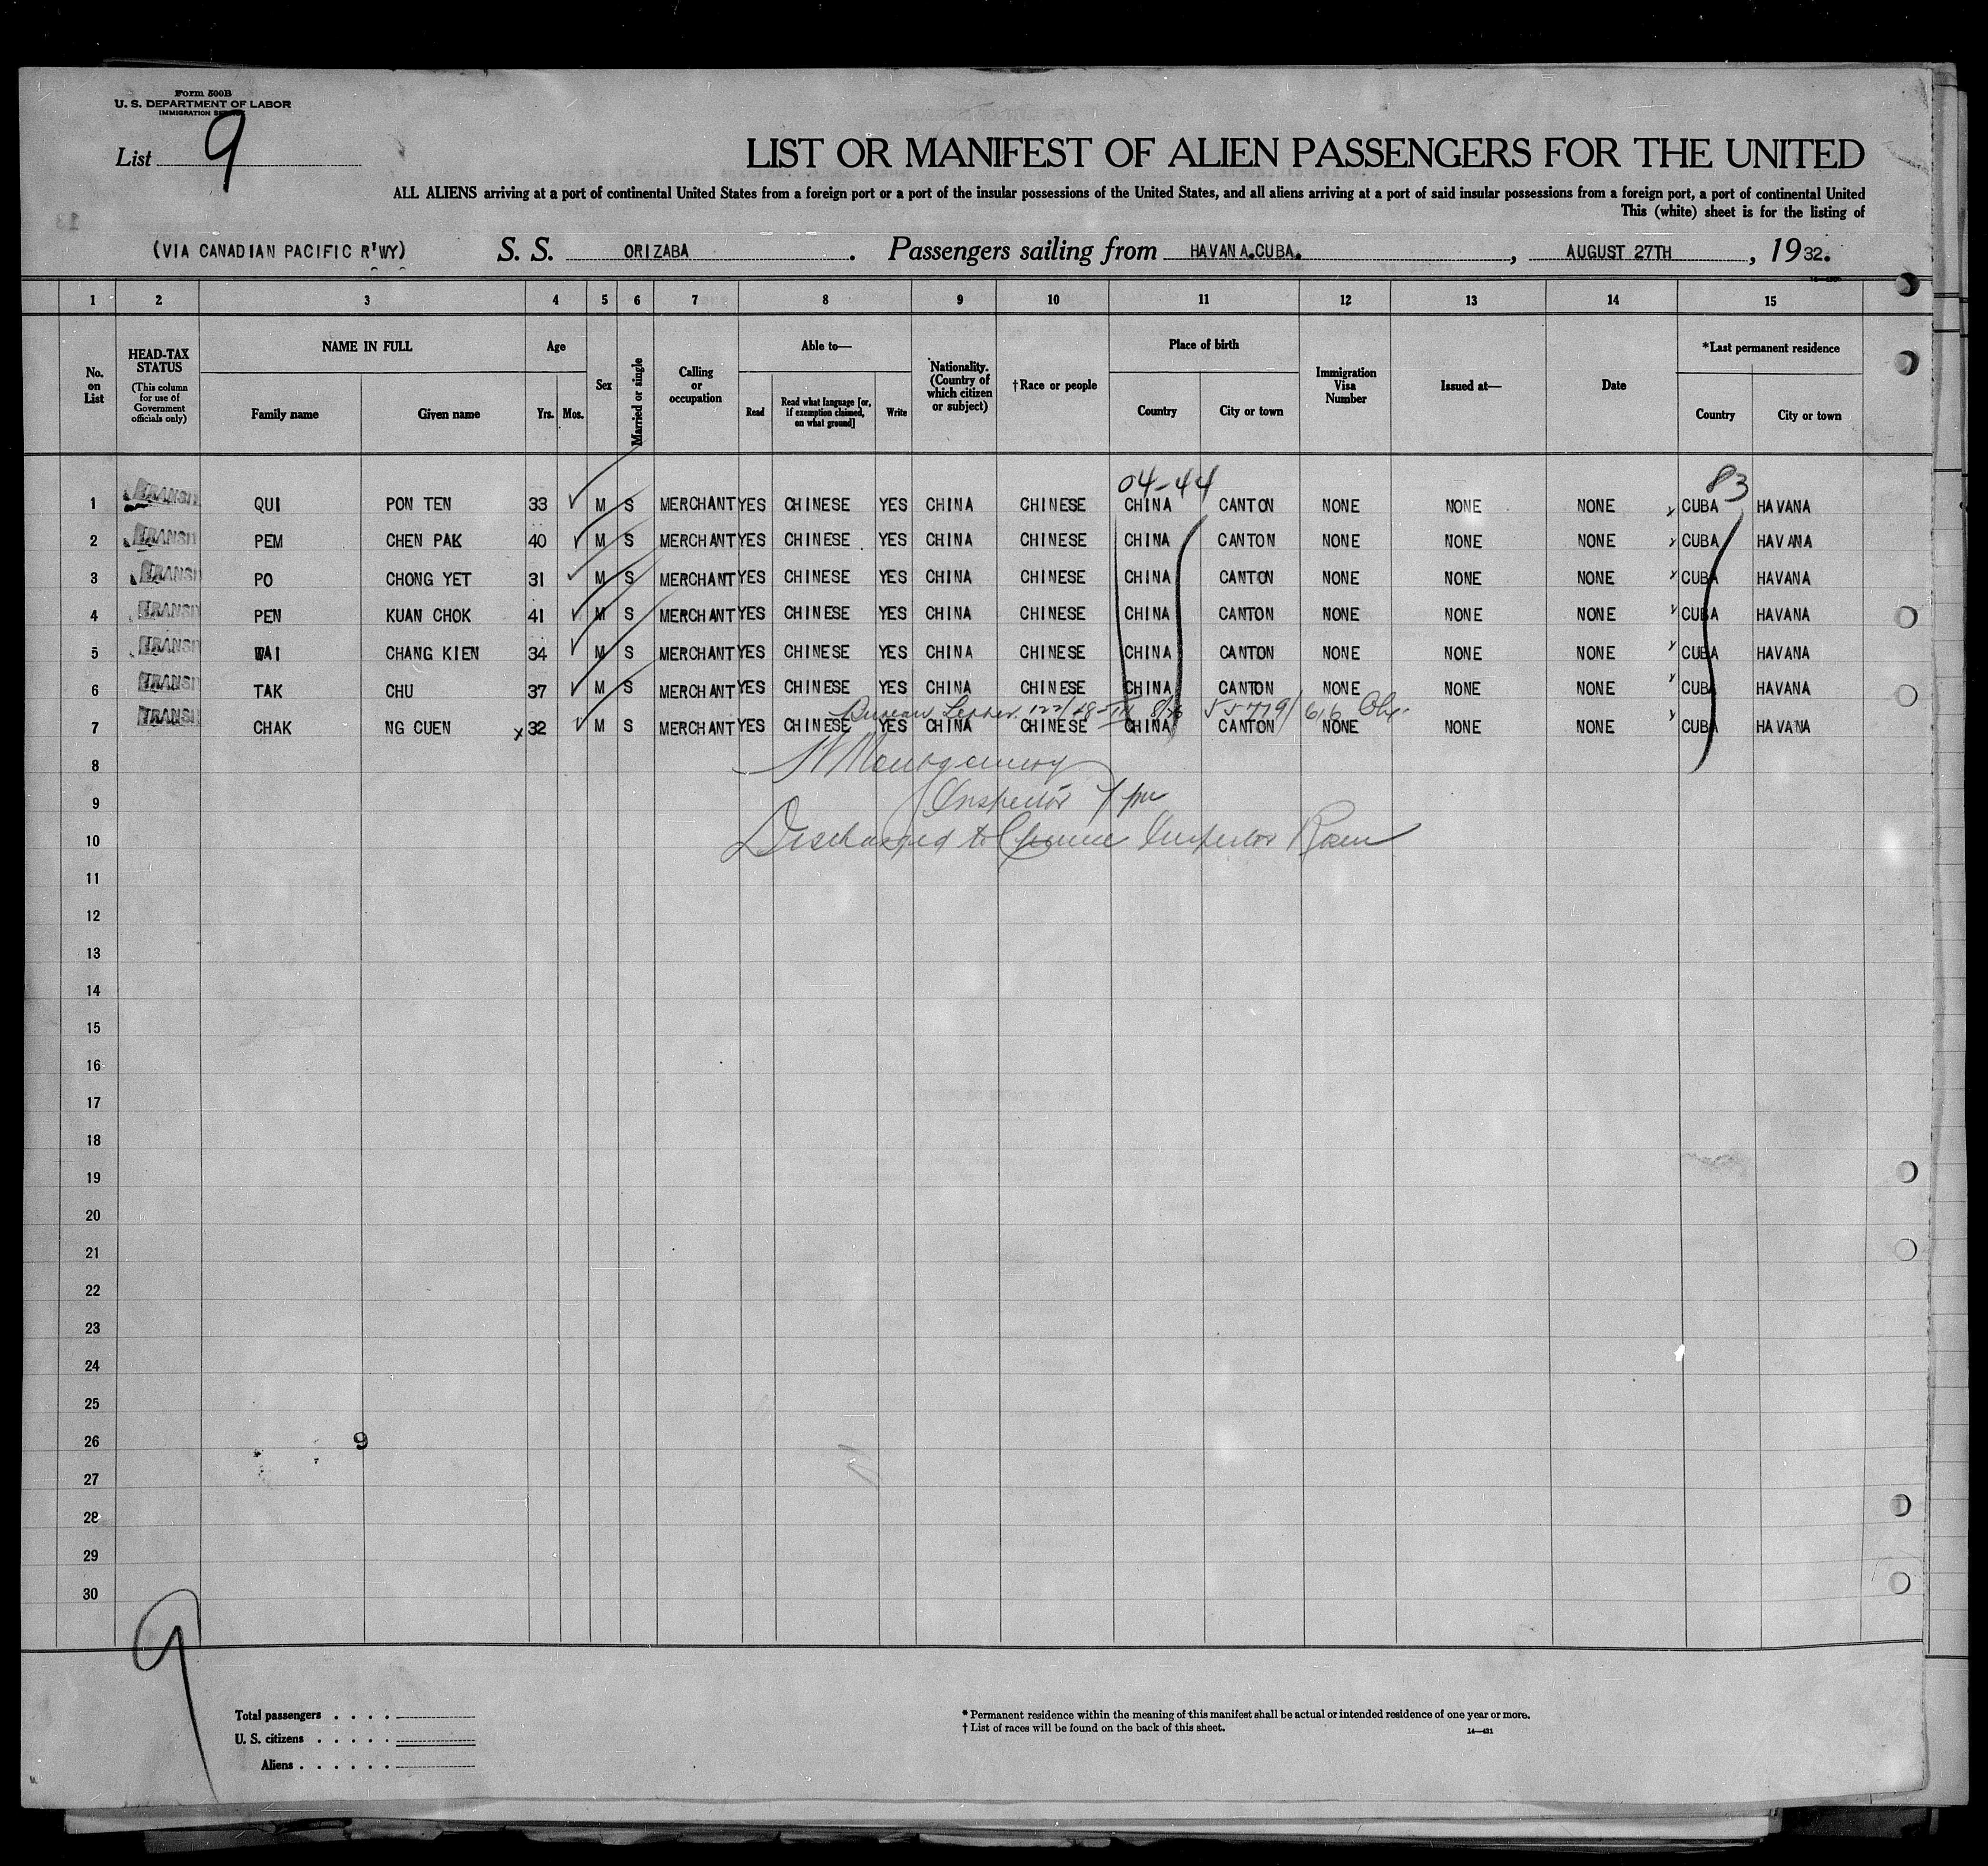 Form 500B
U. S. DEPARTMENT OF LABOR
IMMIGRATION SERVICE
List 9
LIST OR MANIFEST OF ALIEN PASSENGERS FOR THE UNITED
ALL ALIENS arriving at a port of continental United States from a foreign port or a port of the insular possessions of the United States, and all aliens arriving at a port of said insular possessions from a foreign port, a port of continental United
This (white) sheet is for the listing of
(VIA CANADIAN PACIFIC R'WY) S. S. ORIZABA. Passengers sailing from HAVANA.CUBA., AUGUST 27TH, 1932.
1 2 3 4 5 6 7 8 9 10 11 12 13 14 15
No. on List
HEAD-TAX STATUS
(This column for use of Government officials only)
NAME IN FULL
Family name Given name
Age
Yrs. Mos.
Sex
Married or single
Calling or occupation
Able to—
Read
Read what language [or, if exemption claimed, on what ground]
Write
Nationality. (Country of which citizen or subject)
†Race or people
Place of birth
Country City or town
Immigration Visa Number
Issued at—
Date
*Last permanent residence
Country City or town
04-44 83
1 TRANSIT QUI PON TEN 33 M S MERCHANT YES CHINESE YES CHINA CHINESE CHINA CANTON NONE NONE NONE CUBA HAVANA
2 TRANSIT PEM CHEN PAK 40 M S MERCHANT YES CHINESE YES CHINA CHINESE CHINA CANTON NONE NONE NONE CUBA HAVANA
3 TRANSI PO CHONG YET 31 M S MERCHANT YES CHINESE YES CHINA CHINESE CHINA CANTON NONE NONE NONE CUBA HAVANA
4 TRANSI PEN KUAN CHOK 41 M S MERCHANT YES CHINESE YES CHINA CHINESE CHINA CANTON NONE NONE NONE CUBA HAVANA
5 TRANSI WAI CHANG KIEN 34 M S MERCHANT YES CHINESE YES CHINA CHINESE CHINA CANTON NONE NONE NONE CUBA HAVANA
6 TRANSI TAK CHU 37 M S MERCHANT YES CHINESE YES CHINA CHINESE CHINA CANTON NONE NONE NONE CUBA HAVANA
Bureau Letter 55779/616
7 TRANSI CHAK NG CUEN x 32 M S MERCHANT YES CHINESE YES CHINA CHINESE CHINA CANTON NONE NONE NONE CUBA HAVANA
8 Montgomery
9 Inspector
10 Discharged to Chinese Inspector Rosen
11
12
13
14
15
16
17
18
19
20
21
22
23
24
25
26 9
27
28
29
30
9
Total passengers . . . .
U. S. citizens . . . . .
Aliens . . . . . .
* Permanent residence within the meaning of this manifest shall be actual or intended residence of one year or more.
† List of races will be found on the back of this sheet.
14—431